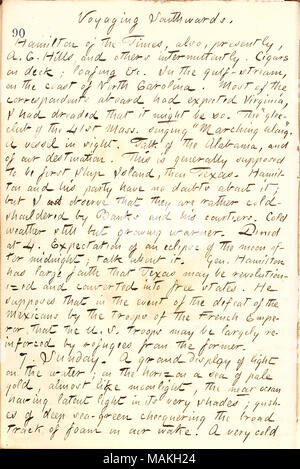 Voyaging Southwards.
90
Hamilton of the Times, also, presently,
A. C. Hills and others intermittently. Cigars
on deck; loafing &c. In the gulf-stream,
on the coast of North Carolina. Most of the
correspondents aboard had expected Virginia,
I had dreaded that it might be so. The "glee-
club" of the 41st Mass. singing "Marching Along."
A vessel in sight. Talk of the Alabama, and
of our destination. This is generally supposed
to be first, Ship Island, then Texas. Hamil-
ton and his party have no doubts about it;
but I observe that they are rather cold-
shouldered by Banks and his courtiers. Cold
weather still but growing warmer. Dined
at 4. Expectation of an eclipse of the moon af-
ter midnight; talk about it. Gen. Hamilton
has large faith that Texas may be revolution-
ized and converted into free states. He
supposes that in the event of the defeat of the
Mexicans by the troops of the French Empe-
ror, that the U. S. troops may be largely re-
inforced by refugees from the former.
7. Sunday. A grand display of light
on the water; on the horizon a sea of pale
gold, almost like moonlight, the near ocean
having latent light in its very shades; gush-
es of deep sea-green chequering the broad
track of foam in our wake. A very cold
alamy
Image ID: MAKH24
www.alamy.com